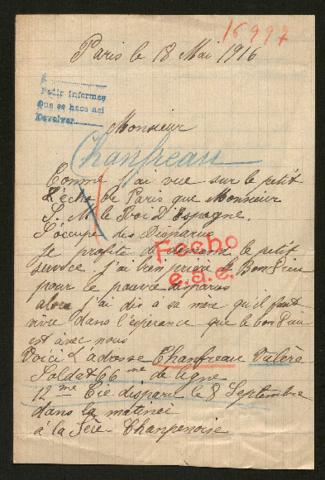 16997
Paris le 18 Mai 1916
Pedir informes
Que se hace así
Devolver
Monsieur
Chanfreau
Comme j'ai vue sur le petit
L'écho de Paris que Monsieur
S. M. le Roi D'Espagne
S'occupe des Disparue
Je profite de le petit
service j'ai bien prier le Bon Dieu
pour le pauvre disparus
alors j'ai dis à sa mère qu'il faut
vivre dans l'espérance que le bon Dieu
est avec nous
Fecho
e.a.c.
Voici L'adresse Chanfreau Valère
Soldat 66 me de ligne
12 me Cie disparu le 8 Septembre
dans la matinei
à la Fère Champenoise